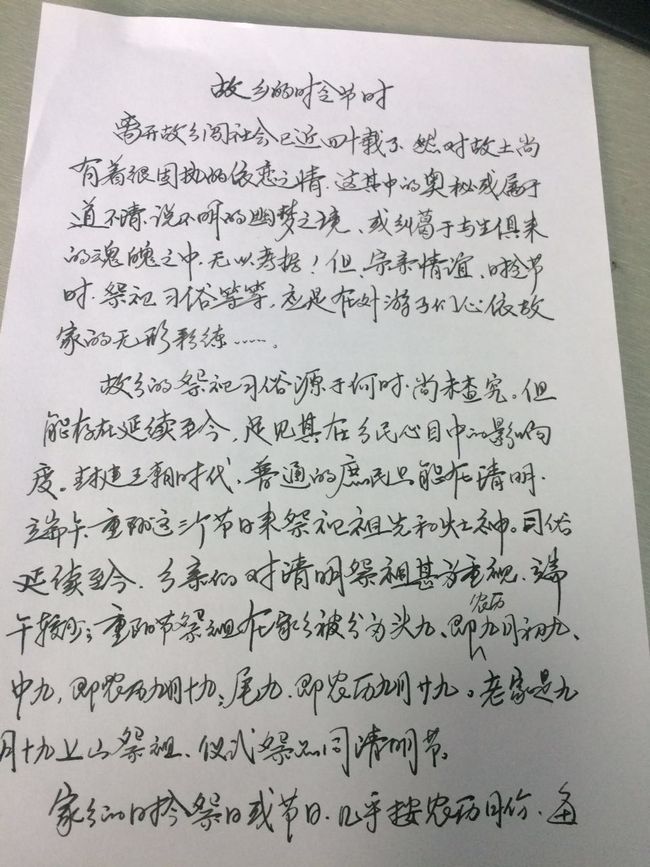 故乡的时令节时
离开故乡闯社会已近四十载了，然对故土尚
有着很固执的依恋之情。这其中的奥秘或属于
道不清、说不明的幽梦之境、或纠葛于与生俱来
的魂魄之中，无以考据！但，宗亲情谊、时令节
时、祭祀习俗等等，应是在外游子们心依故
家的无形彩练……。
故乡的祭祀习俗源于何时，尚未查究。但
能存在延续至今，足见其在乡民心目中的影响
度。封建王朝时代，普通的庶民只能在清明、
端午、重阳这三个节日来祭祀祖先和灶神。习俗
延续至今，乡亲们对清明祭祖甚为重视，端
午较少；重阳节祭祖在家乡被分为头九、即农历九月初九、
中九，即农历九月十九；尾九，即农历九月廿九。老家是九
月十九上山祭祖、仪式祭品同清明节。
家乡的时令祭日或节日，几乎按农历月份，每